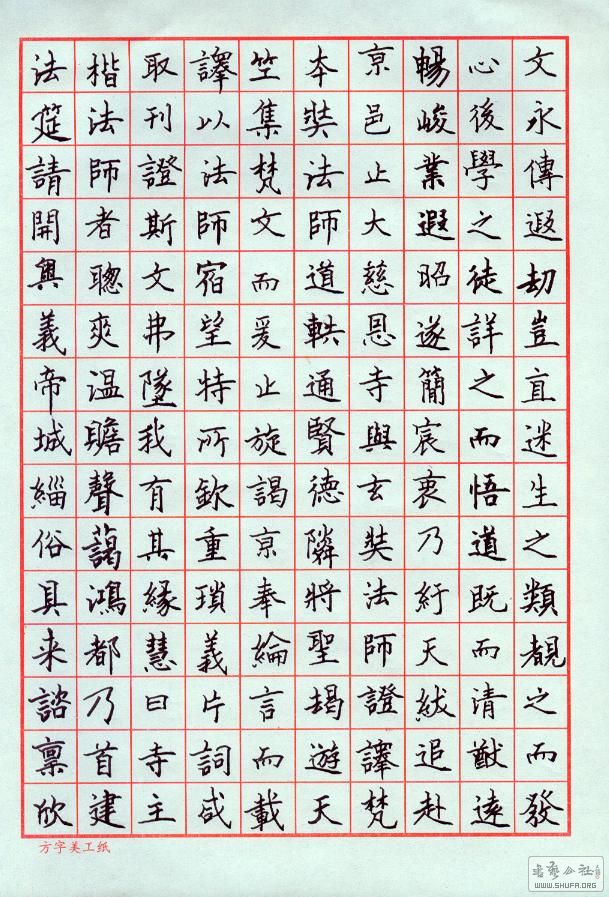 文永傳遐劫豈直迷生之類覩之而發
心後學之徒詳之而悟道既而清猷遠
暢峻業遐昭遂簡宸衷乃紆天紱追赴
京邑止大慈恩寺與玄奘法師證譯梵
本奘法師道軼通賢德隣將聖朅遊天
竺集梵文而爰止旋謁京奉綸言而載
譯以法師宿望特所欽重瑣義片詞咸
取刊證斯文弗墜我有其緣慧曰寺主
楷法師者聰爽溫贍聲藹鴻都乃首建
法筵請開奧義帝城緇俗具来諮稟欣
方字美工纸
書藝公社
WWW.SHUFA.ORG